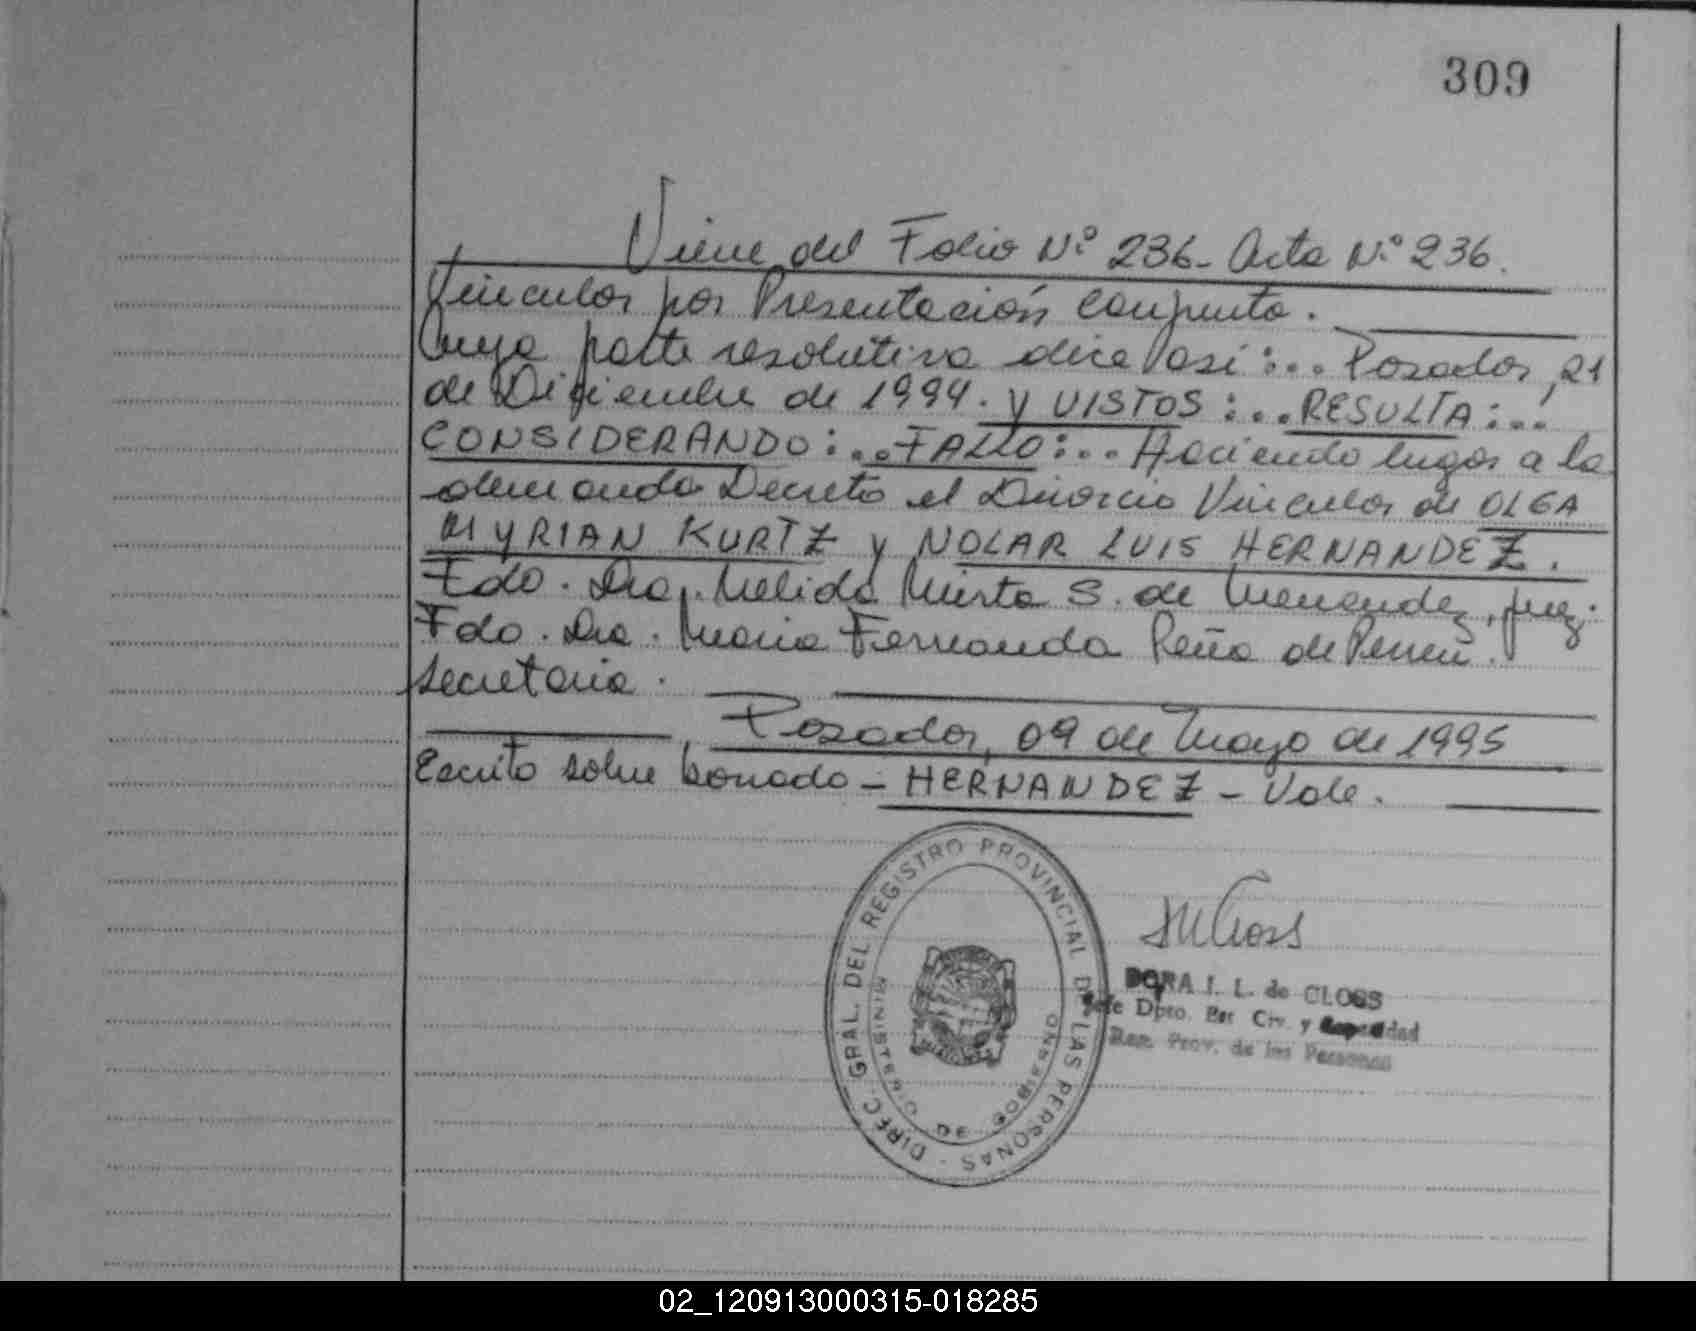 309
Viene del Folio Nº 236- Acta Nº 236.
Vincular por Presentación Conjunta.
Cuya parte resolutiva dice así:... Posadas, 21
de Diciembre de 1994. y VISTOS:...RESULTA:...
CONSIDERANDO:...FALLO:... Haciendo lugar a la
demanda Decreto el Divorcio Vincular de OLGA
MYRIAN KURTZ y NOLAR LUIS HERNANDEZ.
Fdo. Dra. Nelida Mirta S. de Menendez, Juez.
Fdo. Dra. Maria Fernanda Peña de
Secretaria.
Posadas, 09 de Mayo de 1995
Escrito sobre borrado - HERNANDEZ - Vale.
DIREC. GRAL. DEL REGISTRO PROVINCIAL DE LAS PERSONAS -
MINISTERIO DE GOBIERNO
DORA I. L. de CLOSS
Jefe Dpto. Est Civ. y Capacidad
Reg. Prov. de las Personas
02_120913000315-018285